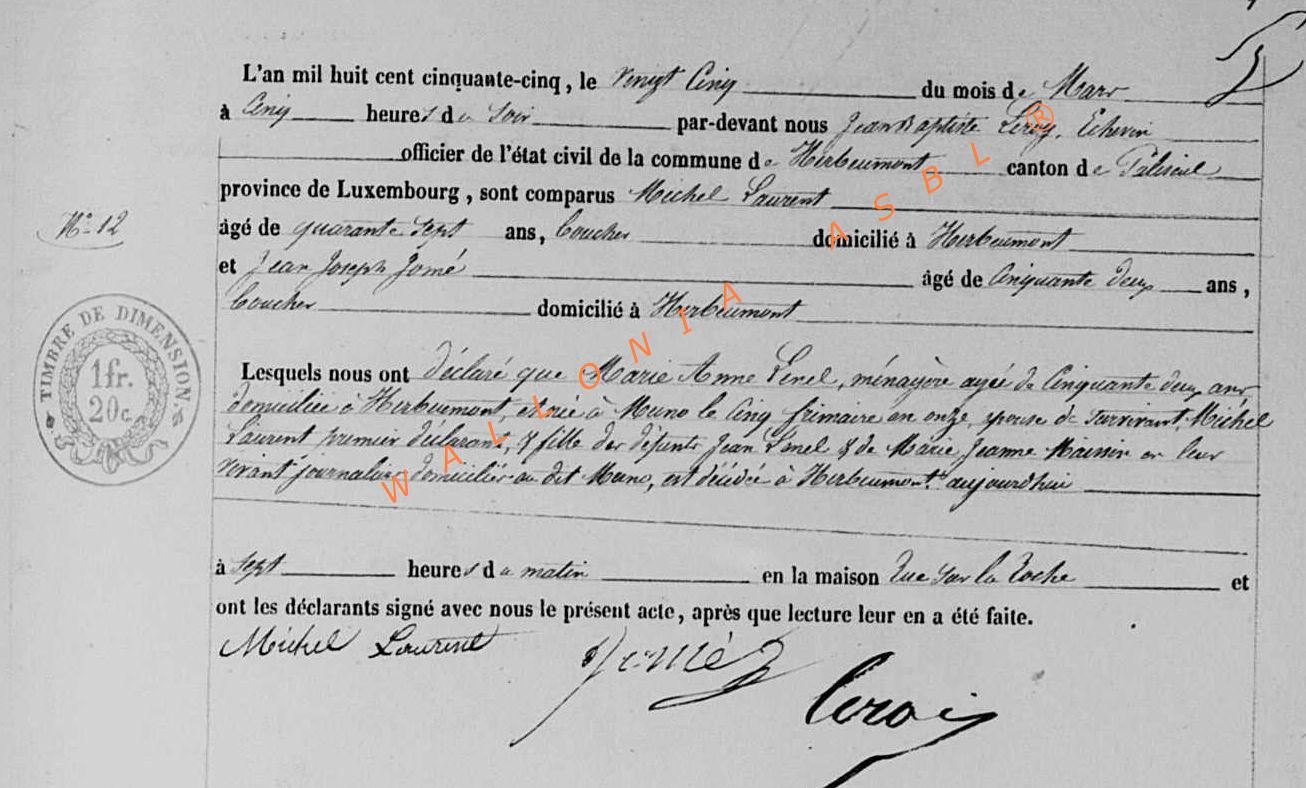 L'an mil huit cent cinquante-cinq, le Vingt Cinq du mois de Mars
à Cinq heures du Soir par-devant nous Jean Baptiste Leroy, Echevin
officier de l'état civil de la commune de Herbeumont canton de Paliseul
province de Luxembourg, sont comparus Michel Laurent
N° 12
âgé de quarante Sept ans, domicilié à Herbeumont
et Jean Joseph Jomé âgé de Cinquante deux ans,
domicilié à Herbeumont
TIMBRE DE DIMENSION
1 fr.
20 c.
Lesquels nous ont déclaré que Marie Anne Lenel, ménagère agée de Cinquante deux ans
domiciliée à Herbeumont, et née à Muno le Cinq frimaire an onze, epouse de Survivant Michel
Laurent premier déclarant, & fille des défunts Jean Lenel & de Marie Jeanne en leur
vivant journaliers domiciliés au dit Muno, est décédée à Herbeumont aujourd'hui
à Sept heures du matin en la maison Rue Sur la Roche et
ont les déclarants signé avec nous le présent acte, après que lecture leur en a été faite.
Michel Laurent Jomé
Leroi
WALLONIA ASBL ®